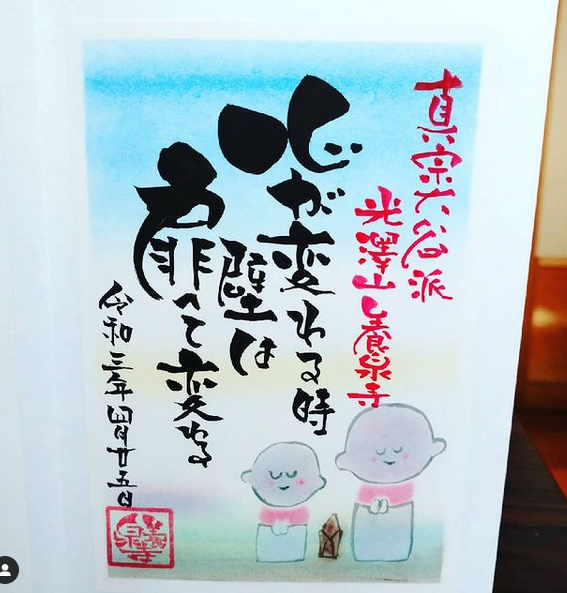 真宗大谷派
光澤山養泉寺
心が変わる時
壁は
扉へと変わる
令和三年四月廿五日
養泉寺